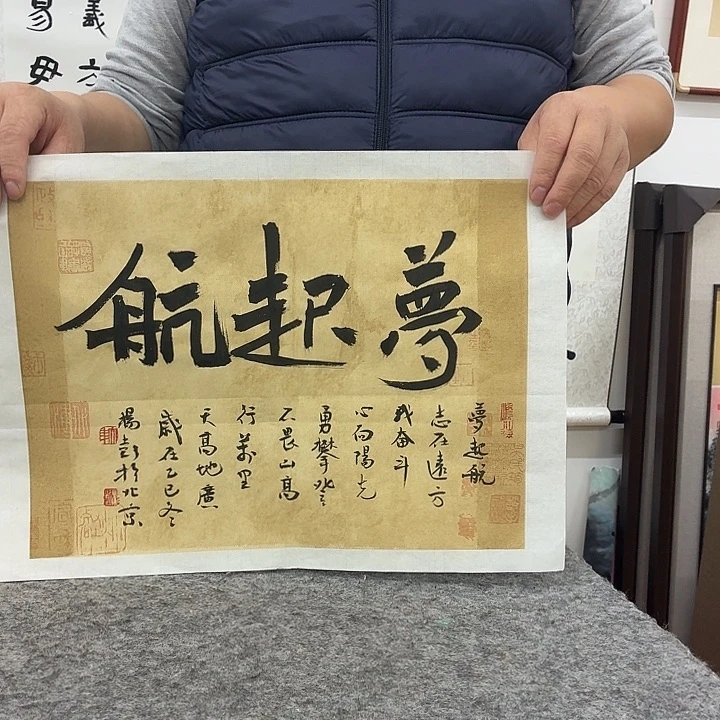 夢起航
夢起航
志在遠方
我奋斗
心向陽光
勇攀登
不畏山高
行萬里
天高地廣
歲在乙巳冬
楊彭於北京
義方
易毋